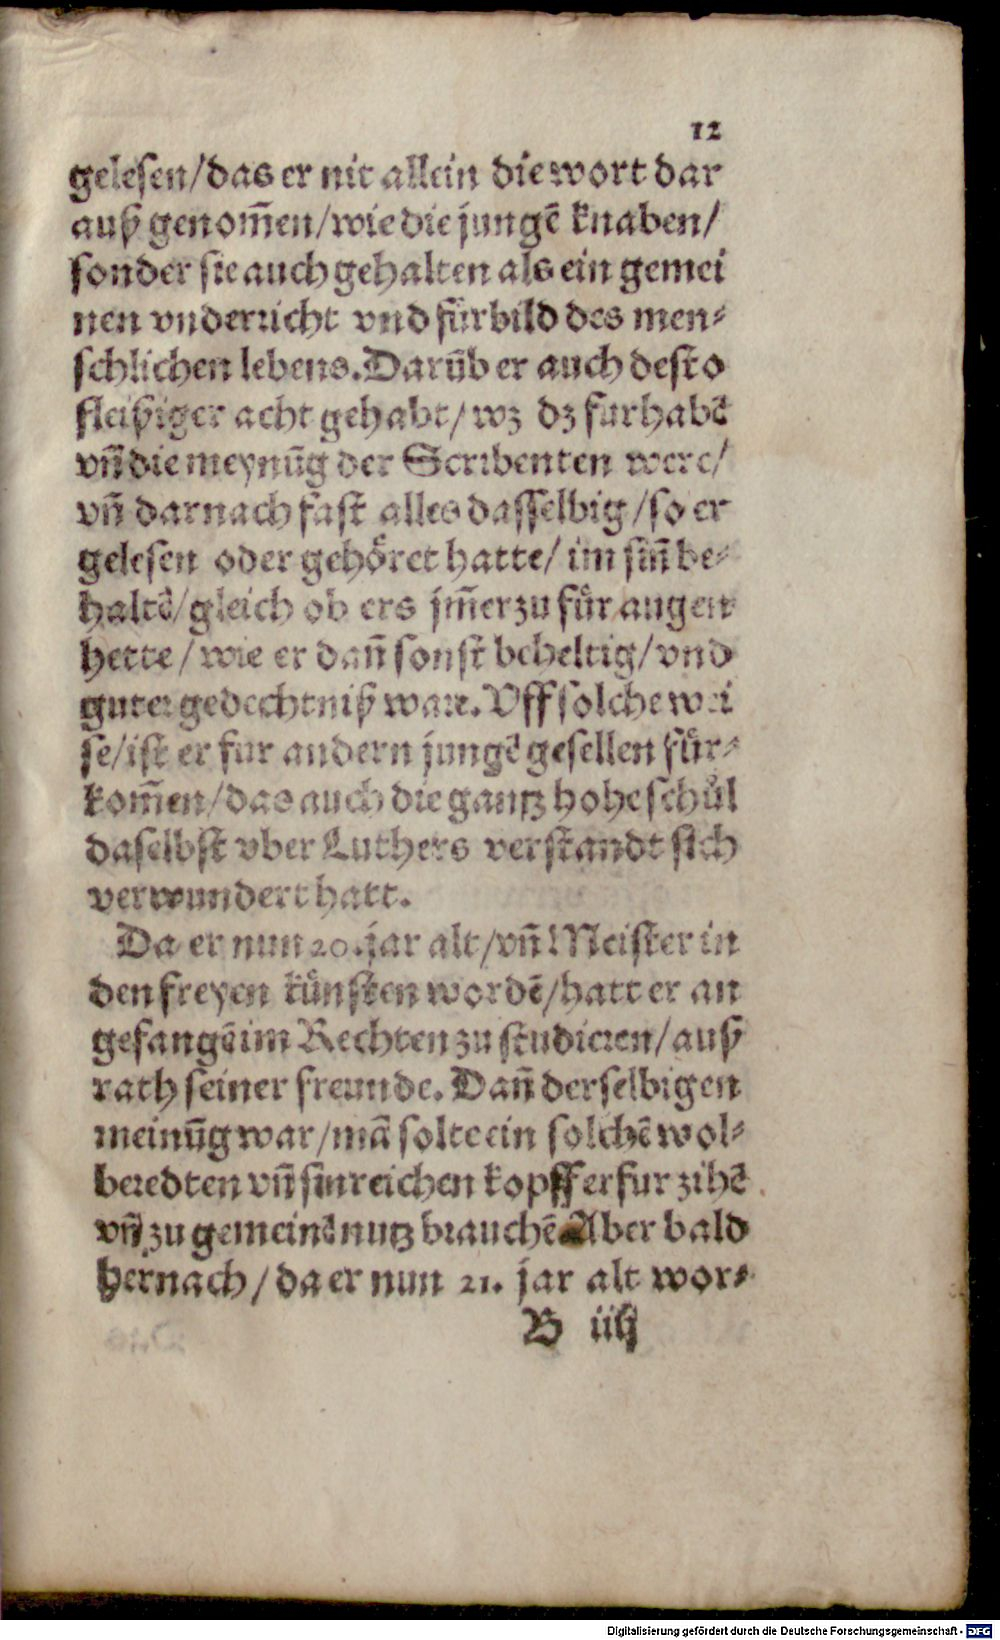 12
gelesen/das er nit allein die wort dar
auß genom̃en/wie die jungẽ knaben/
sonder sie auch gehalten als ein gemei
nen vnderricht vnd fürbild des men-
schlichen lebens. Darũb er auch desto
fleißiger acht gehabt/ wz dz furhabẽ
vñ die meynũg der Scribenten were/
vñ darnach fast alles dasselbig/so er
gelesen oder gehöret hatte/ im siñ be-
haltẽ/gleich ob ers jm̃erzu für augen
hette/wie er dañ sonst beheltig/vnd
guter gedechtniß ware. Vff solche wei
se/ist er fur andern jungẽ gesellen für-
kom̃en/das auch die gantz hohe schůl
daselbst vber Luthers verstandt sich
verwundert hatt.
Da er nun 20. jar alt/vñ Meister in
den freyen künsten wordẽ/hatt er an
gefangẽ im Rechten zu studieren/auß
rath seiner freunde. Dañ derselbigen
meinũg war/mã solte ein solchẽ wol-
beredten vñ sinreichen kopff erfur zihẽ
vñ zu gemeinẽ nutz brauchẽ Aber bald
hernach/da er nun 21. jar alt wor-
B iiij
Digitalisierung gefördert durch die Deutsche Forschungsgemeinschaft - DFG